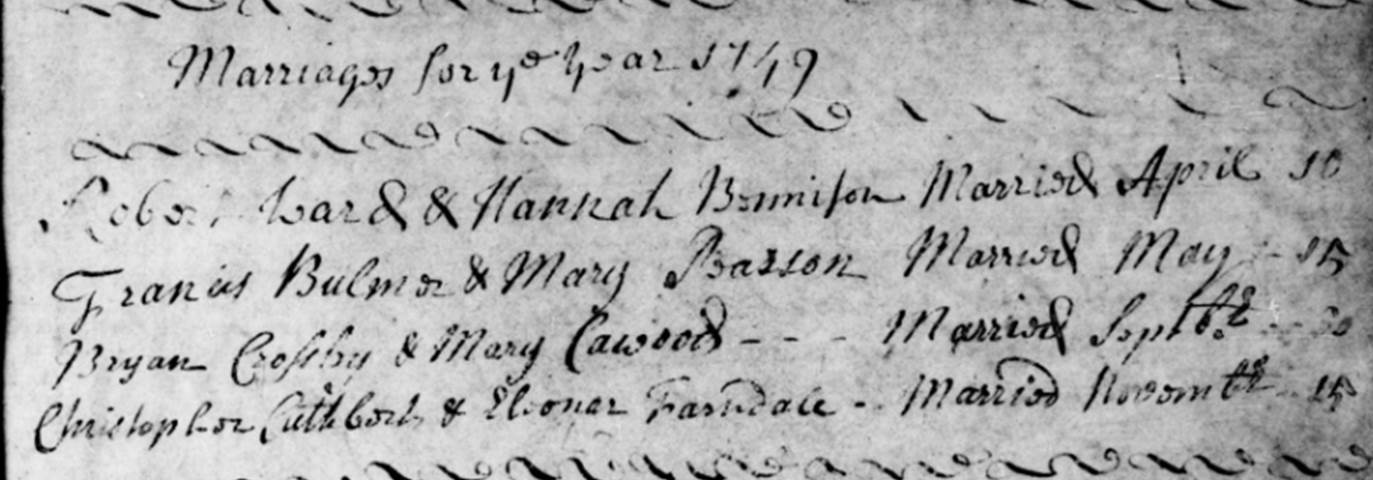 Marriages for ye Year 1749
Robert Ward & Hannah Bennison Married April 10
Francis Bulmer & Mary Pearson Married May - 15
Bryan Crosby & Mary Cawood - - - Married Septbr - -
Christopher Cuthbert & Eleonar Farndale - Married Novembr - 15